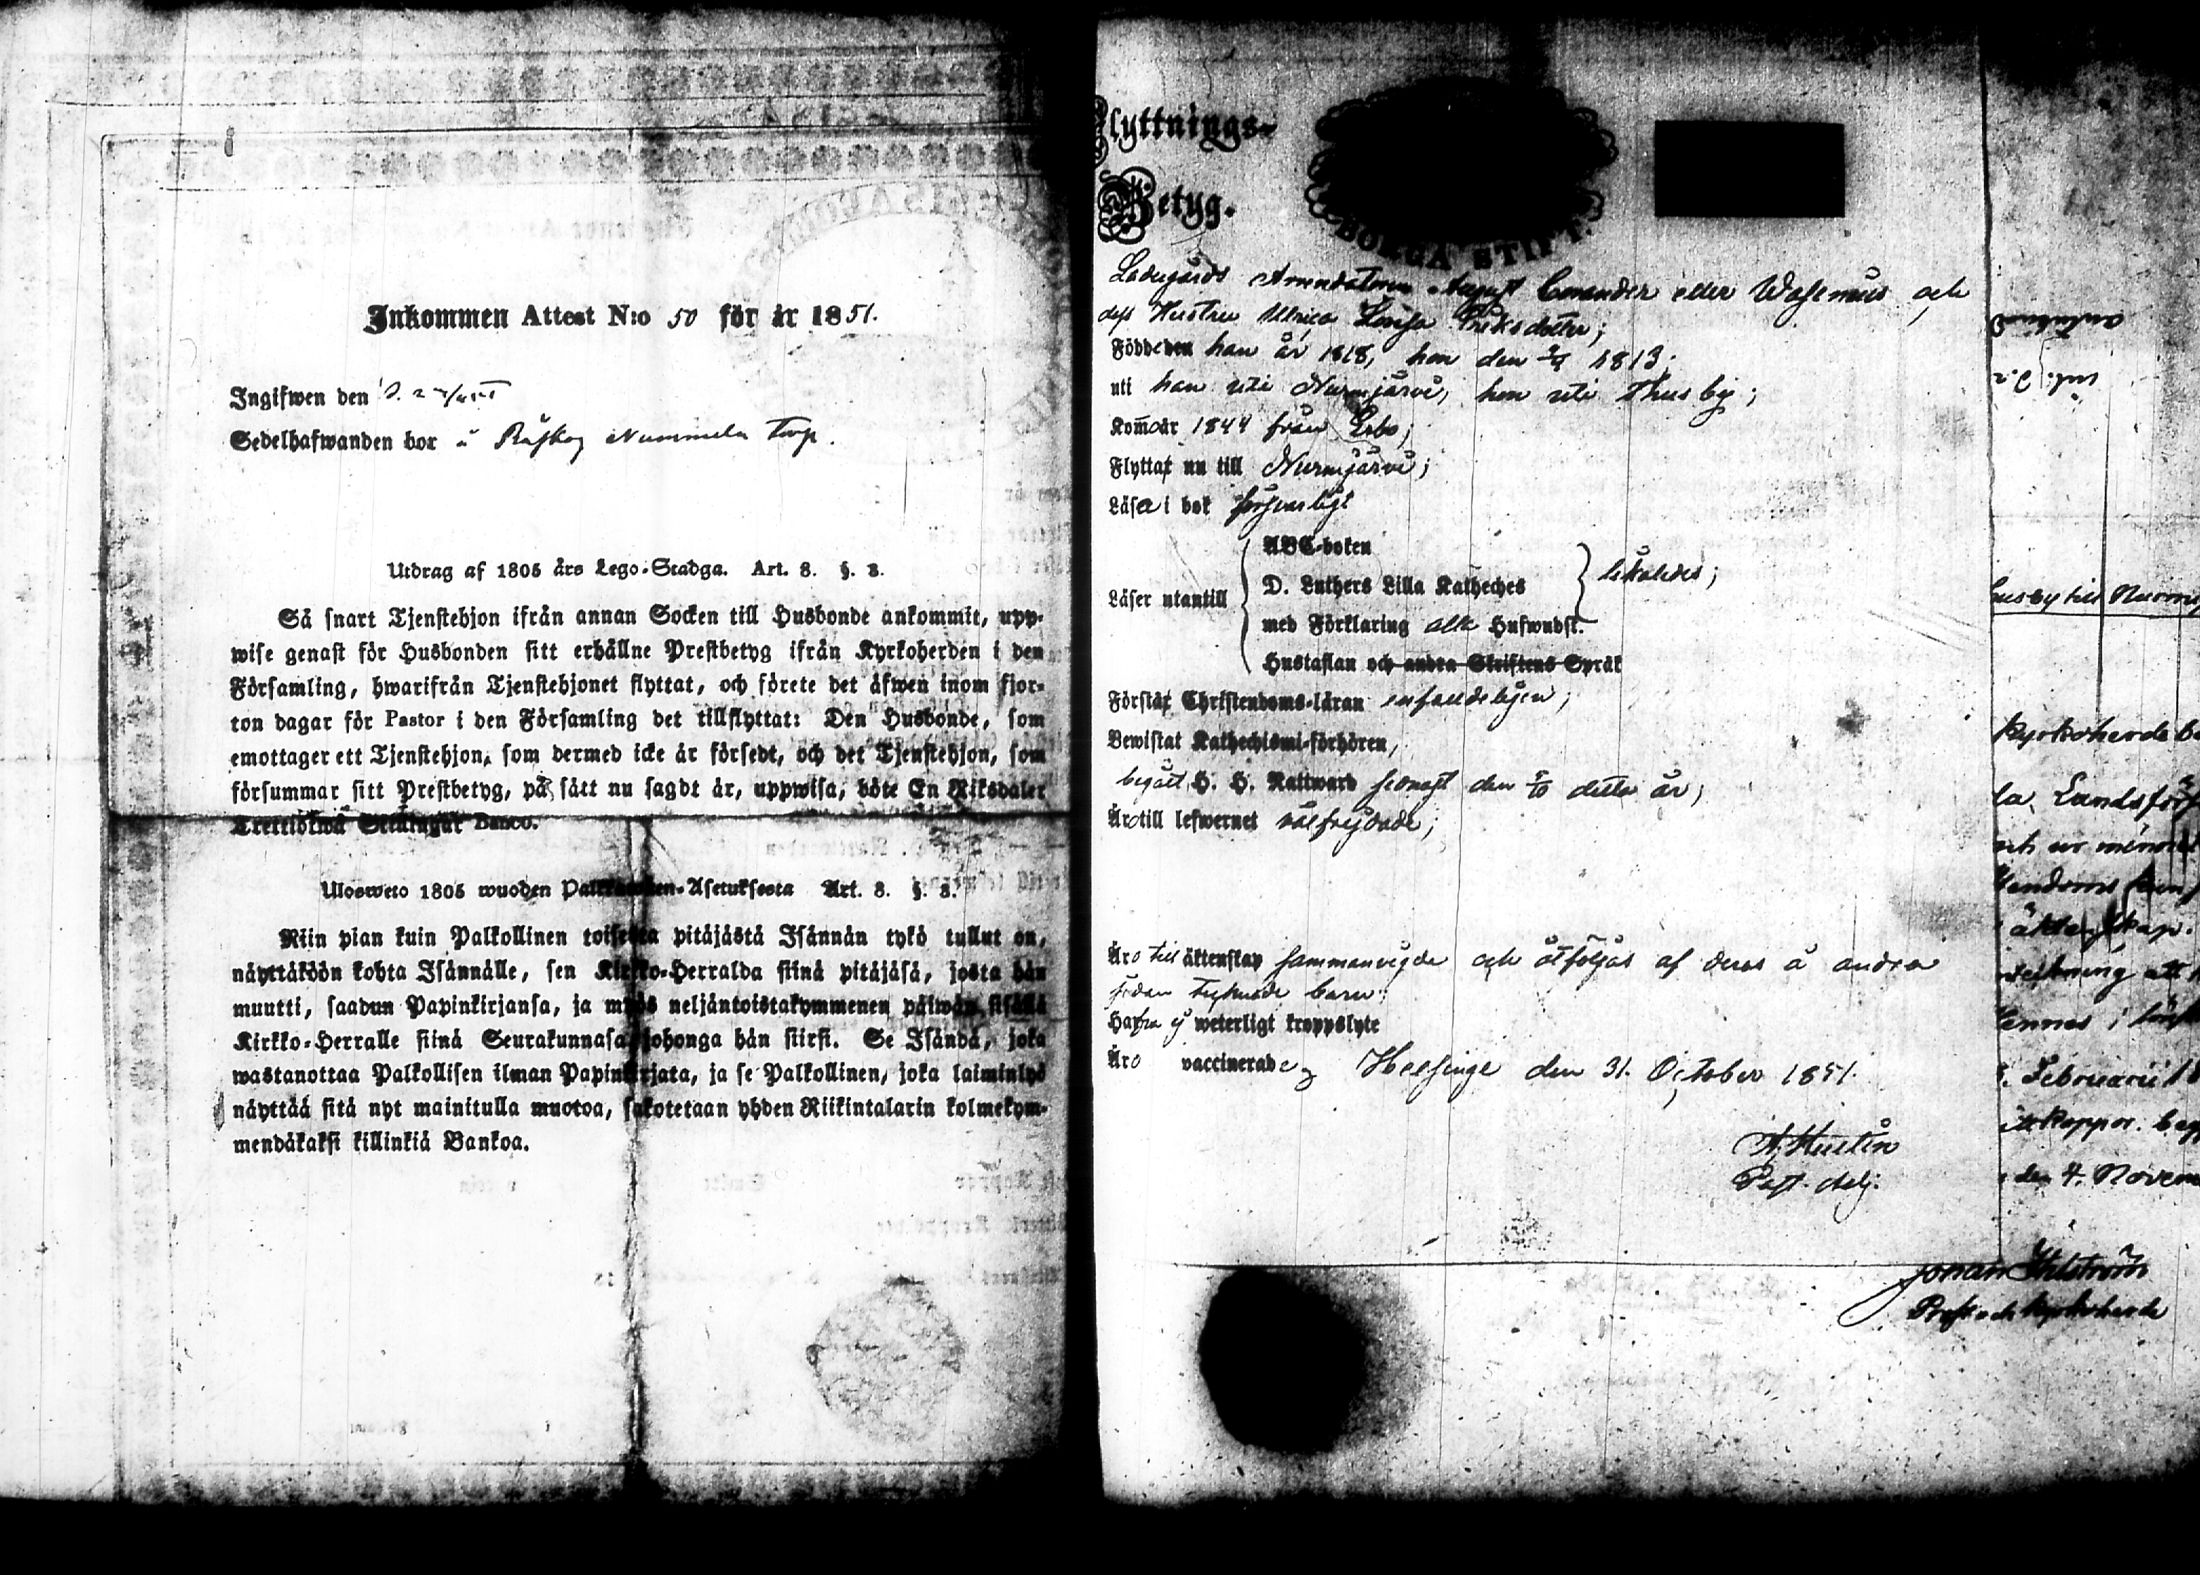 Inkommen Attest N:o 50 för år 1851.
Ingifwen den
Sedelhafwanden bor å Råskog Nummela Torp.
Utdrag af 1805 års Lego-Stadga. Art. 8. §. 3.
Så snart Tjenstehjon ifrån annan Socken till Husbonde ankommit, upp-
wise genast för Husbonden sitt erhållne Prestbetyg ifrån Kyrkoherden i den
Församling, hwarifrån Tjenstehjonet flyttat, och förete det äfwen inom fjor-
ton dagar för Pastor i den Församling det tillflyttat: Den Husbonde, som
emottager ett Tjenstehjon, som dermed icke är försedt, och det Tjenstehjon, som
försummar sitt Prestbetyg, på sätt nu sagdt är, uppwisa, böte En Riksdaler
Trettiotwå Skillingar Banco.
Ulosweto 1805 wuoden Palkkausten-Asetuksesta Art. 8. §. 3.
Niin pian kuin Palkollinen toisesta pitäjästä Isännän tykö tullut on,
näyttäköön kohta Isännälle, sen Kirkko-Herralda siinä pitäjäsä, josta hän
muutti, saadun Papinkirjansa, ja myös neljäntoistakymmenen päiwän sisällä
Kirkko-Herralle siinä Seurakunnasa johonga hän siirsi. Se Isändä, joka
wastanottaa Palkollisen ilman Papinkirjata, ja se Palkollinen, joka laiminlyö
näyttää sitä nyt mainitulla muotoa, sakotetaan yhden Riikintalarin kolmekym-
mendäkaksi killinkiä Bankoa.
Flyttnings-
Betyg.
BORGÅ STIFT.
Ladugårds Arrendatorn August Cerander eller Wasenius och
dess Hustru Ulrica Lovisa Eriksdotter;
Född den han år 1818, hon den 1813;
uti han uti Nurmijärvi, hon uti Thusby;
Kom år 1844 från Esbo;
Flyttar nu till Nurmijärvi;
Läsa i bok försvarligt
Läser utantill
ABC-boken
D. Luthers Lilla Katheches
med Förklaring alla Hufwudst.
Hustaflan och andra Skriftens Språk
likaledes;
Förstår Christendoms-läran enfaldeligen;
Bewistat Kathechismi-förhören,
begått H. H. Nattward sednast den detta år;
Äro till lefwernet välfrejdade;
Äro till äktenskap sammanvigde och åtföljas af deras å andra
sidan tecknade barn.
Hafwa ej weterligt kroppslyte
Äro vaccinerade, Helsinge den 31. October 1851.
Past. Adj.
Kyrkoherde
la, Landsför
Februarii 18
den 4. Novem
Johan Ahlström
Prost och Kyrkoherde